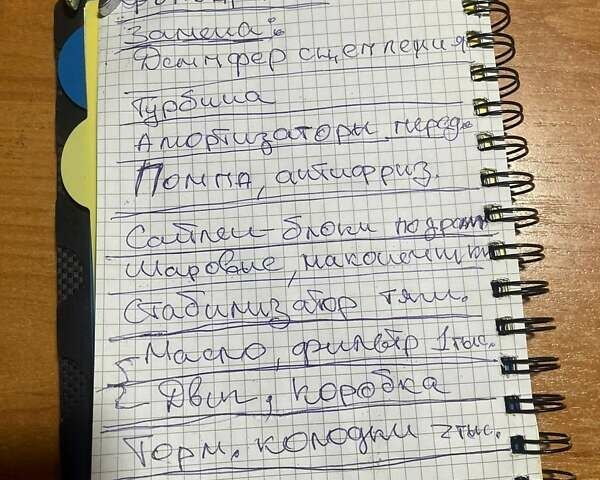 Замена:
Демпфер сцепления
Турбина
Амортизаторы перед.
Помпа, антифриз.
Сайлен-блоки подрамн
Шаровые, наконечники
Стабилизатор тяги.
Масло, фильтр 1тыс.
Двиг, коробка
Торм. колодки 2тыс.